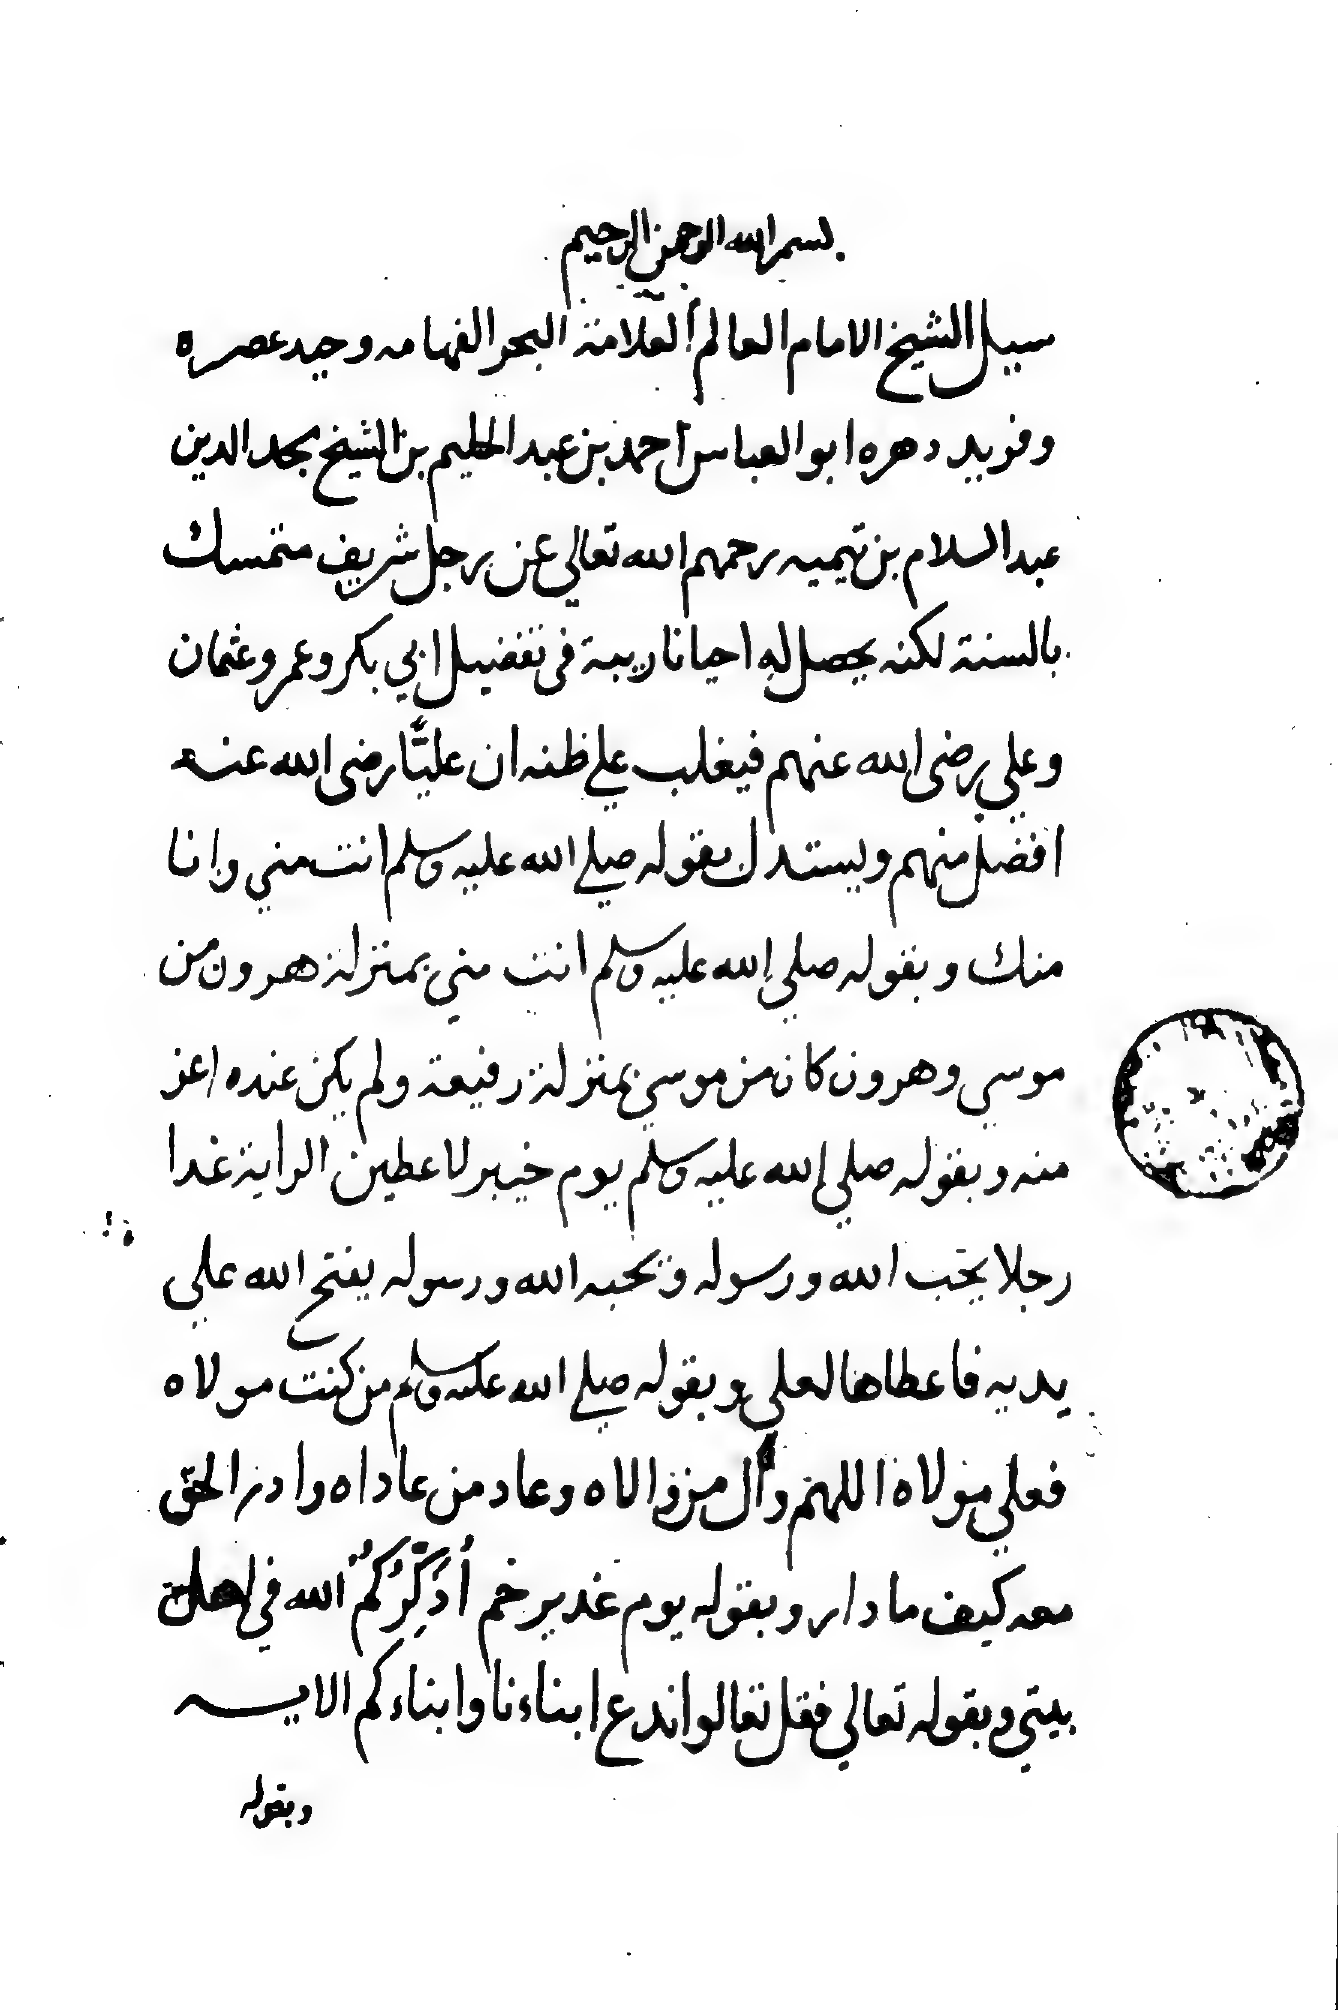 بسم الله الرحمن الرحيم
سيل الشيخ الامام العالم العلامة البحر الفهامه وحيد عصره
وفريد دهره ابو العباس احمد بن عبد الحليم بن الشيخ مجد الدين
عبد السلام بن تيميه رحمهم الله تعالي عن رجل شريف متمسك
بالسنة لكنه يحصل له احيانا ريبة في تفضيل ابي بكر وعمر وعثمان
وعلي رضي الله عنهم فيغلب علي ظنه ان عليًّا رضي الله عنه
افضل منهم ويستدل بقوله صلي الله عليه وسلم انت مني وانا
منك وبقوله صلي الله عليه وسلم انت مني بمنزلة هرون من
موسي وهرون كان من موسي بمنزلة رفيعة ولم يكن عنده اعز
منه وبقوله صلي الله عليه وسلم يوم خيبر لاعطين الراية غدا
رجلا يحب الله ورسوله ويحبه الله ورسوله يفتح الله علي
يديه فاعطاها لعلي وبقوله صلي الله عليه وسلم من كنت مولاه
فعلي مولاه اللهم وال من والاه وعاد من عاداه وادر الحق
معه كيف ما دار وبقوله يوم غدير خم أُذَكِّرُكُمُ الله في اهل
بيتي وبقوله تعالي فقل تعالوا ندع ابناءنا وابناءكم الايه
وبقوله